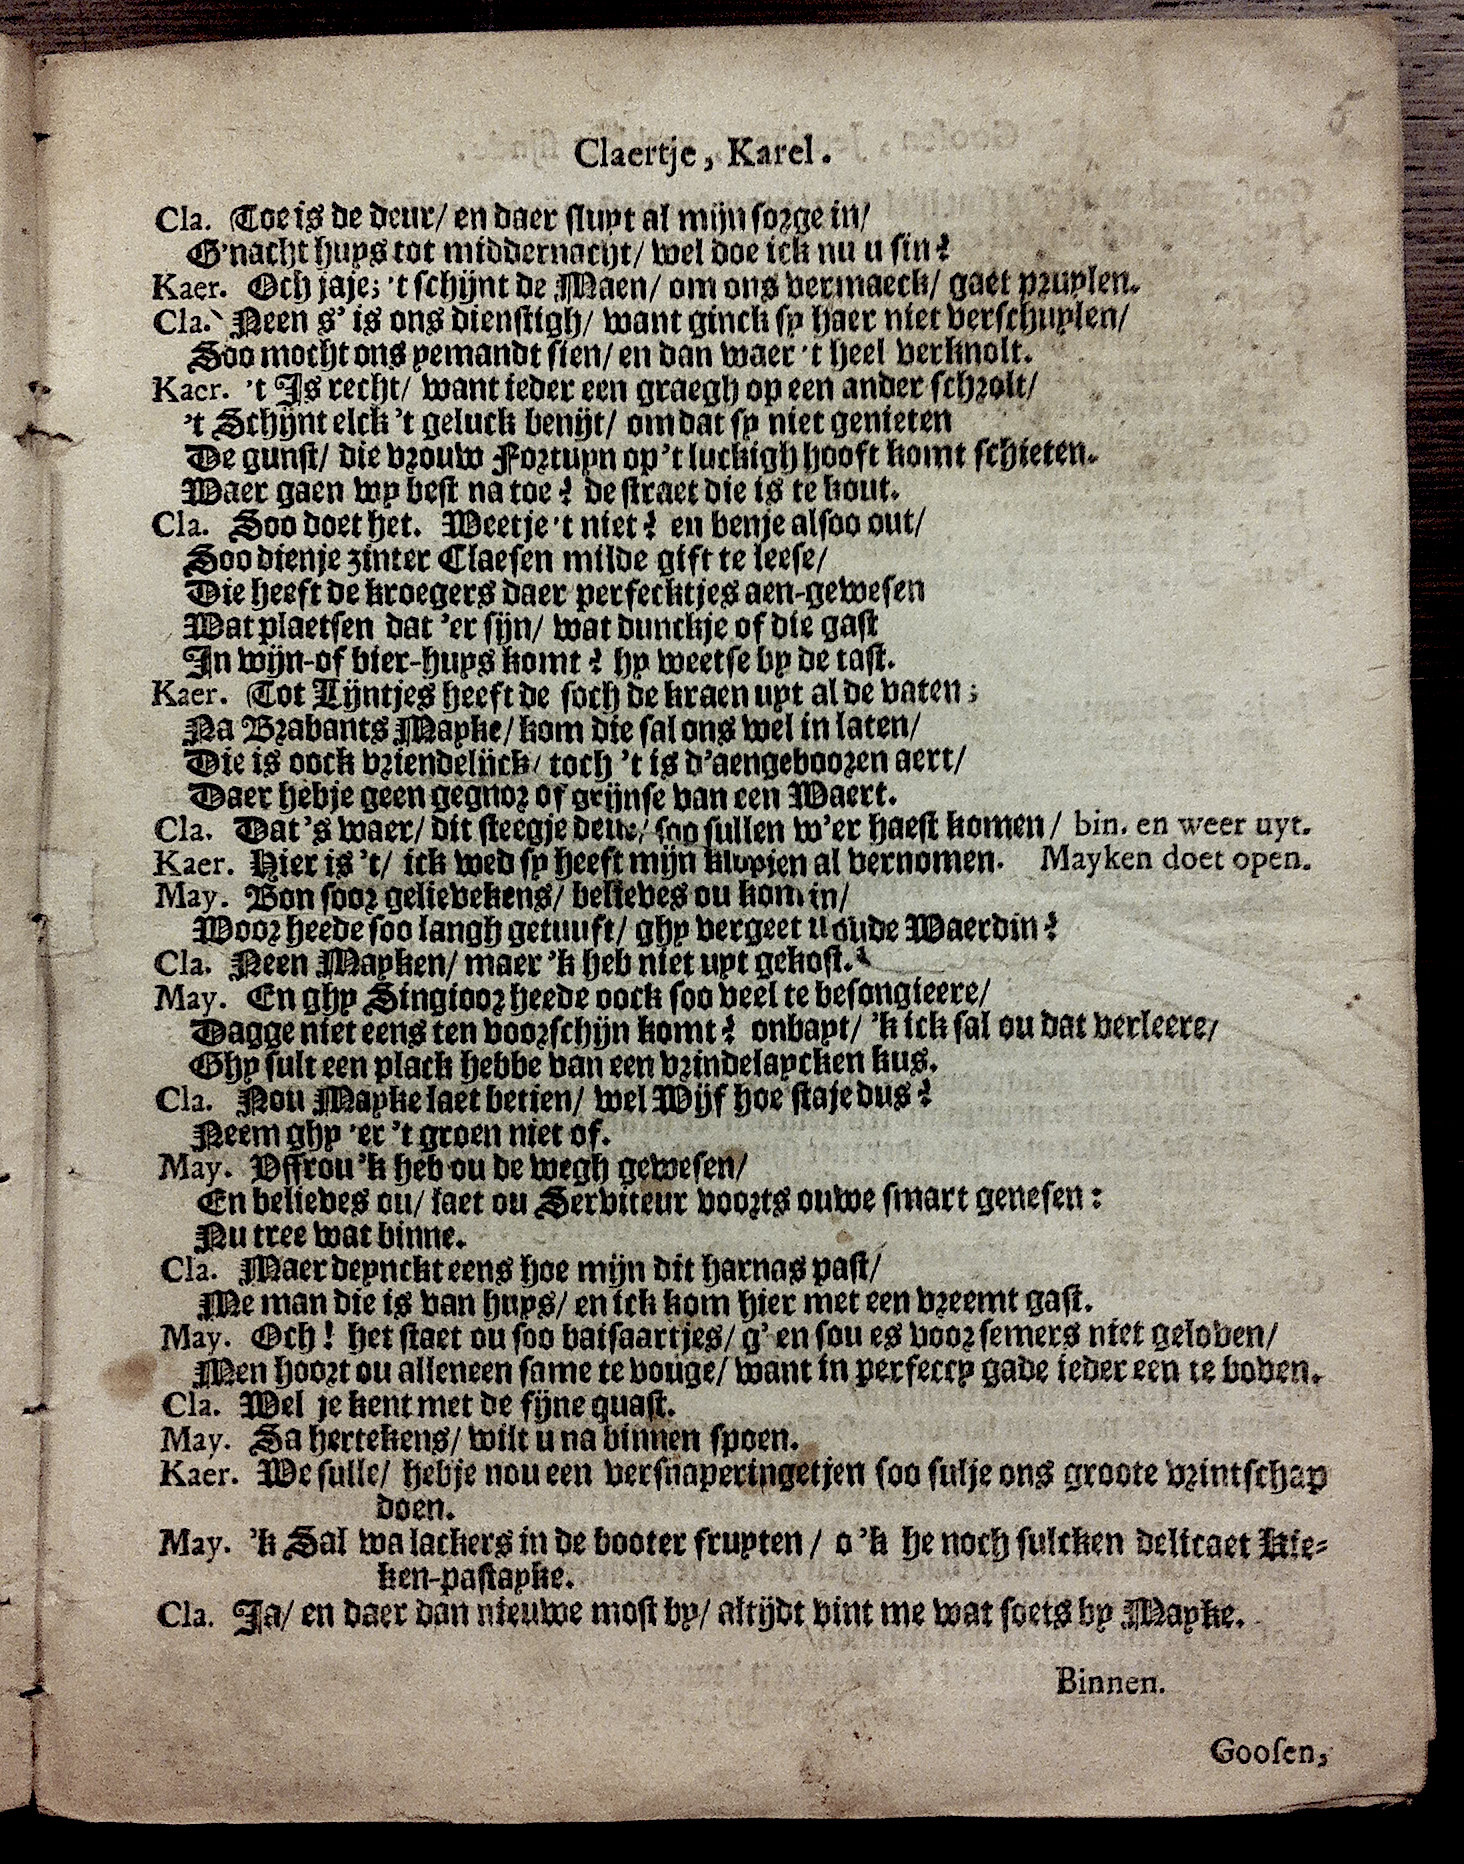 5
Claertje, Karel.
Cla. Toe is de deur/ en daer sluyt al mijn sorge in/
G'nacht huys tot middernacht/ wel doe ick nu u sin?
Kaer. Och jaje; 't schijnt de Maen/ om ons vermaeck/ gaet pruylen.
Cla. Neen s' is ons dienstigh/ want ginck sy haer niet verschuylen/
Soo mocht ons yemandt sien/ en dan waer 't heel verknolt.
Kaer. 't Is recht/ want ieder een graegh op een ander schrolt/
't Schijnt elck 't geluck benijt/ om dat sy niet genieten
De gunst/ die vrouw Fortuyn op 't luckigh hooft komt schieten.
Waer gaen wy best na toe? de straet die is te kout.
Cla. Soo doet het. Weetje 't niet? en benje alsoo out/
Soo dienje zinter Claesen milde gift te leese/
Die heeft de kroegers daer perfecktjes aen-gewesen
Wat plaetsen dat 'er sijn/ wat dunckje of die gast
In wijn-of bier-huys komt? hy weetse by de tast.
Kaer. Tot Lijntjes heeft de soch de kraen uyt al de vaten;
Na Brabants Mayke/ kom die sal ons wel in laten/
Die is oock vriendelijck/ toch 't is d'aengebooren aert/
Daer hebje geen gegnor of grijnse van een Waert.
Cla. Dat 's waer/ dit steegje deur/ soo sullen w'er haest komen/ bin. en weer uyt.
Kaer. Hier is 't/ ick wed sy heeft mijn kluyien al vernomen. Mayken doet open.
May. Bon soor gelievekens/ believes ou kom in/
Woor heede soo langh getuuft/ ghy vergeet u oude Waerdin?
Cla. Neen Mayken/ maer 'k heb niet uyt gekost.
May. En ghy Singioor heede oock soo veel te besongieere/
Dagge niet eens ten voorschijn komt? onbayt/ 'k ick sal ou dat verleere/
Ghy sult een plack hebbe van een vrindelaycken kus.
Cla. Nou Mayke laet betien/ wel Wijf hoe staje dus?
Neem ghy 'er 't groen niet of.
May. Offrou 'k heb ou de wegh gewesen/
En believes ou/ laet ou Serviteur voorts ouwe smart genesen:
Nu tree wat binne.
Cla. Maer deynckt eens hoe mijn dit harnas past/
Me man die is van huys/ en ick kom hier met een vreemt gast.
May. Och! het staet ou soo baisaartjes/ g' en sou es voor semers niet geloven/
Men hoort ou alleneen same te vouge/ want in perfeccy gade ieder een te boven.
Cla. Wel je kent met de fijne quast.
May. Sa hertekens/ wilt u na binnen spoen.
Kaer. We sulle/ hebje nou een versnaperingetjen soo sulje ons groote vrintschap
doen.
May. 'k Sal wa lackers in de booter fruyten/ o 'k he noch sulcken delicaet Kie-
ken-pastayke.
Cla. Ja/ en daer dan nieuwe most by/ altijdt vint me wat soets by Mayke.
Binnen.
Goosen,